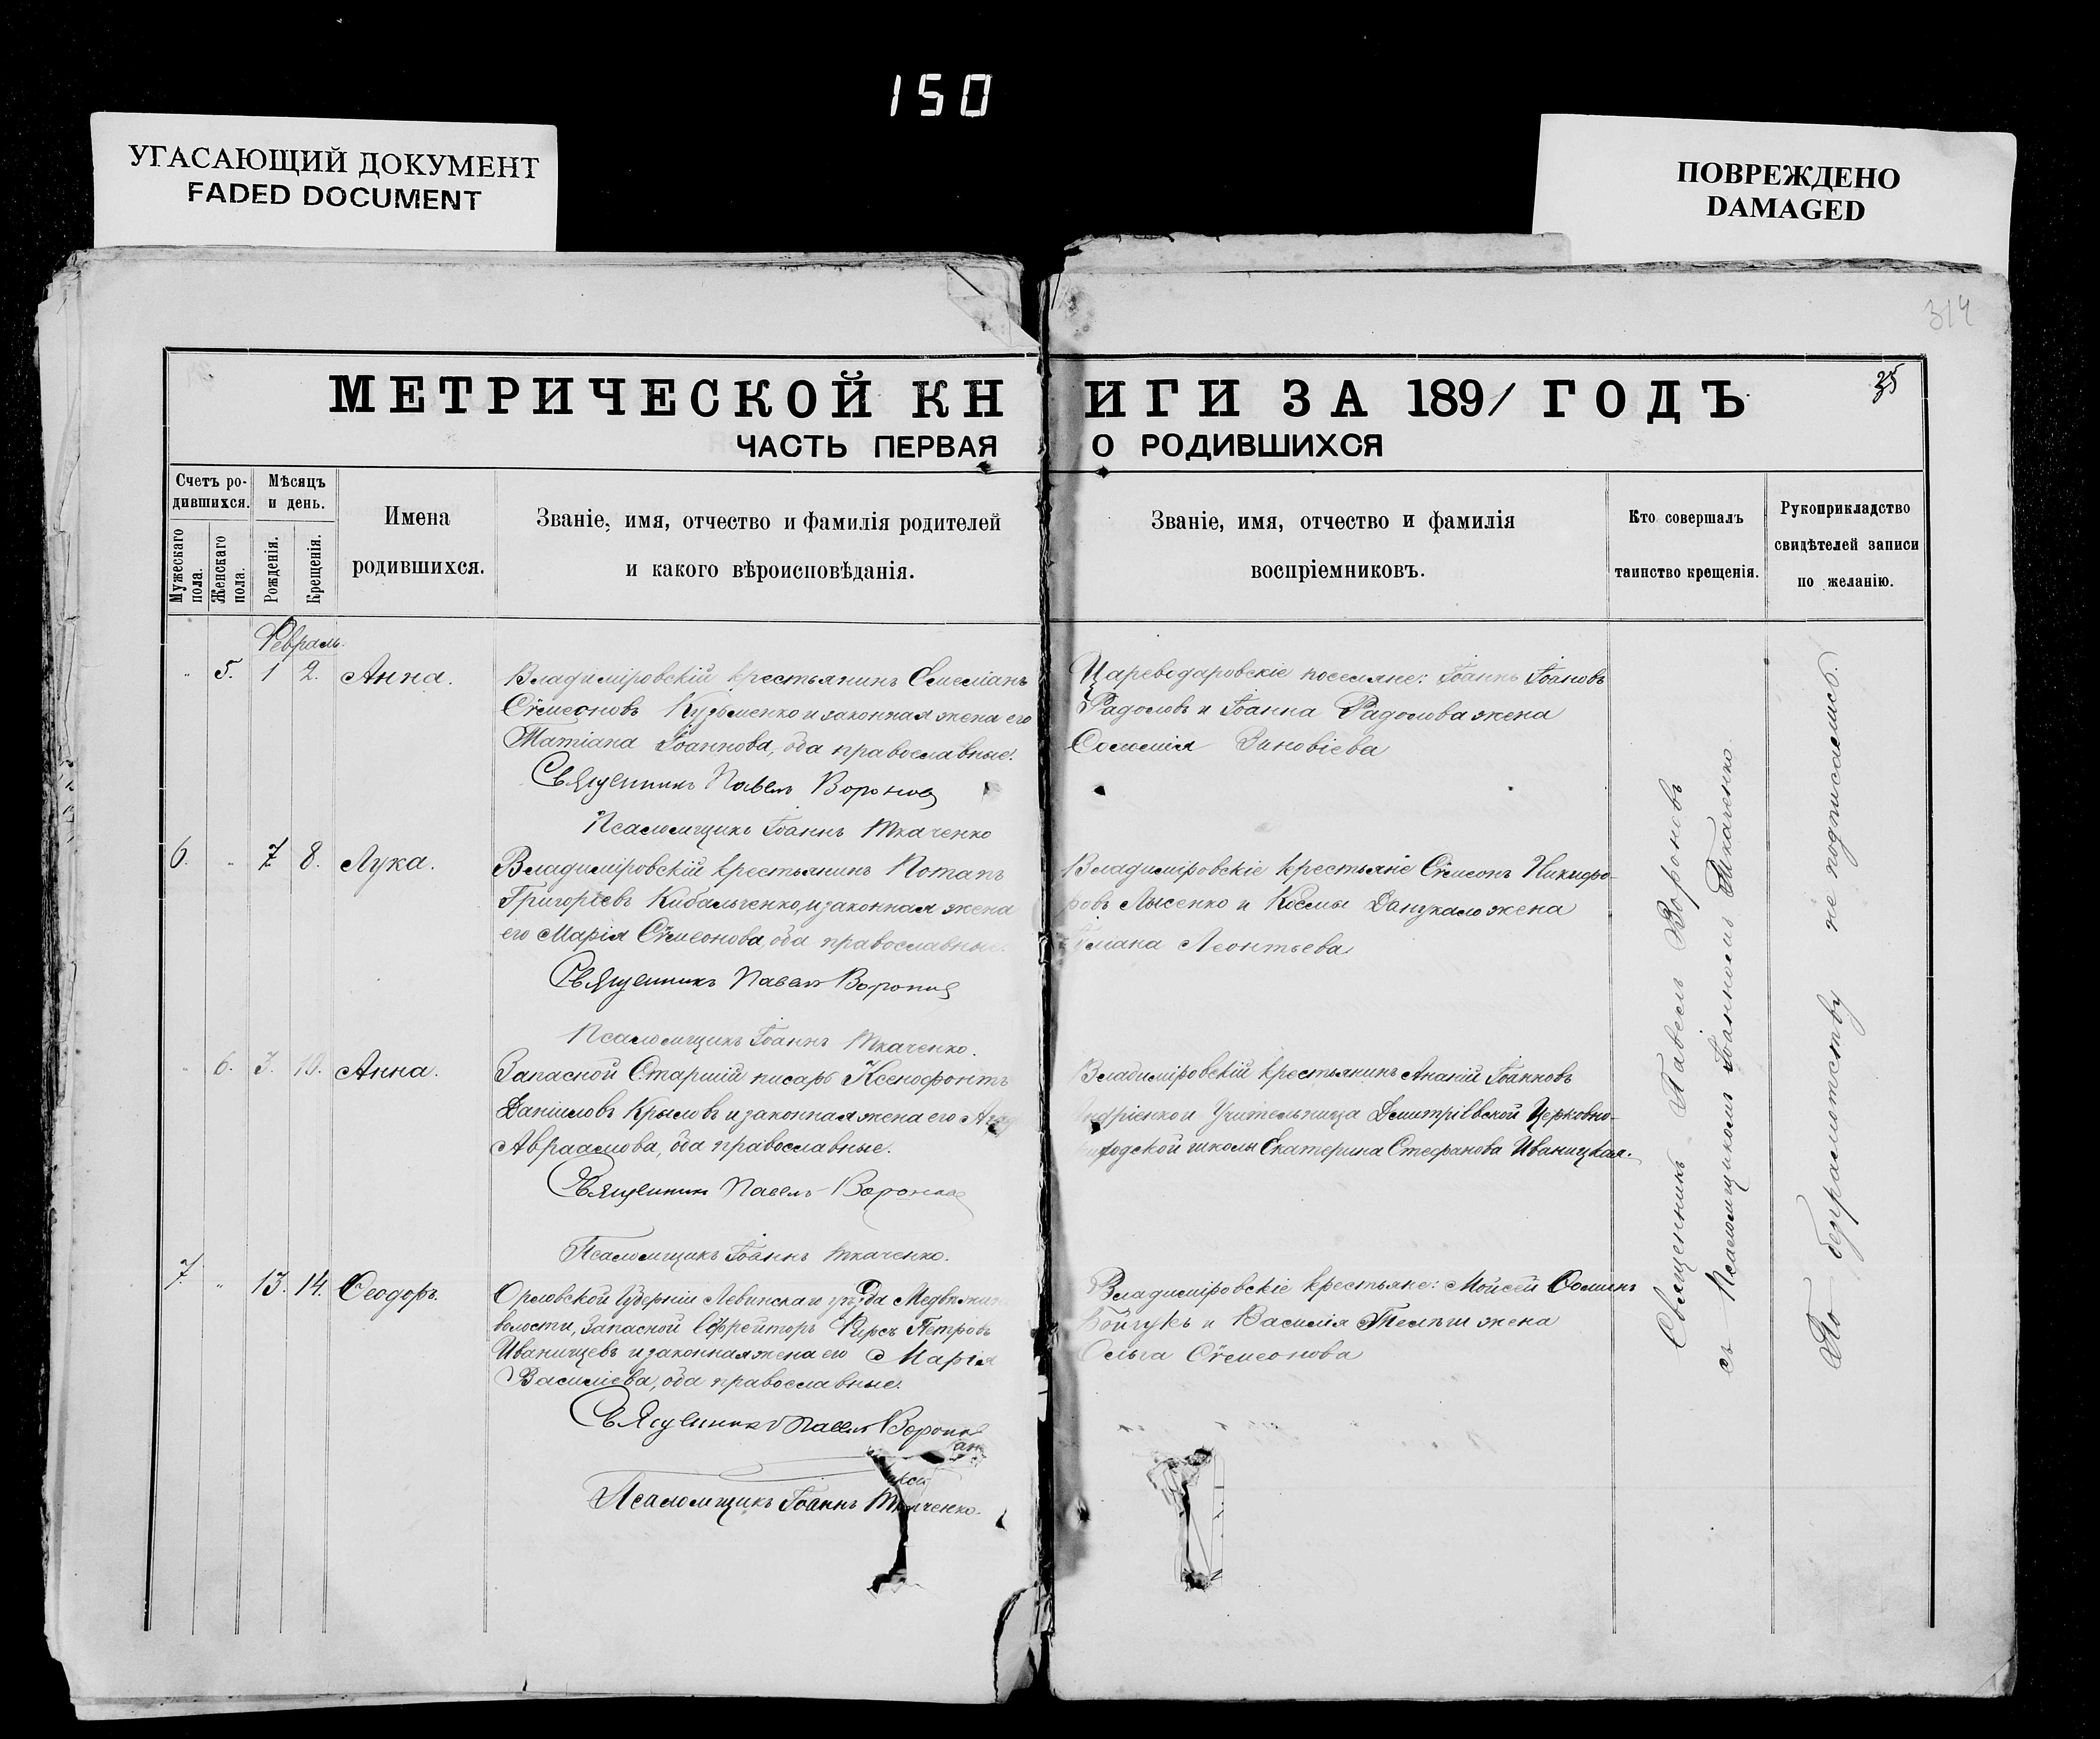 150
УГАСАЮЩИЙ ДОКУМЕНТ
FADED DOCUMENT
ПОВРЕЖДЕНО
DAMAGED
314
35
МЕТРИЧЕСКОЙ КНИГИ ЗА 1891 ГОДЪ
ЧАСТЬ ПЕРВАЯ О РОДИВШИХСЯ
Счетъ ро-
дившихся.
Мужескаго пола.
Женскаго пола.
Мѣсяцъ
и день.
Рожденія.
Крещенія.
Имена
родившихся.
Званіе, имя, отчество и фамилія родителей
и какого вѣроисповѣданія.
Званіе, имя, отчество и фамилія
воспріемниковъ.
Кто совершалъ
таинство крещенія.
Рукоприкладство
свидѣтелей записи
по желанію.
Февраль.
5. 1 2. Анна.
Владиміровскій крестьянинъ Емеліанъ
Сѵмеоновъ Кузьменко и законная жена его
Татіана Іоаннова, оба православные.
Священникъ Павелъ Вороновъ
Псаломщикъ Іоаннъ Ткаченко
Цареводаровскіе поселяне: Іоаннъ Іоановъ
Радоловъ и Іоанна Радолова жена
Соломія Зиновіева
6. 7 8. Лука.
Владиміровскій крестьянинъ Потапъ
Григоріевъ Кибальченко, и законная жена
его Марія Сѵмеонова, оба православные.
Священникъ Павелъ Вороновъ
Псаломщикъ Іоаннъ Ткаченко.
Владиміровскіе крестьяне Сѵмеонъ Никифо-
ровъ Лысенко и Космы жена
Леонтьева
6. 3. 10. Анна.
Запасной Старшій писарь Ксенофонтъ
Даніиловъ Крыловъ и законная жена его
Авраамова, оба православные.
Священникъ Павелъ Вороновъ
Псаломщикъ Іоаннъ Ткаченко.
Владиміровскій крестьянинъ Ананій Іоанновъ
и Учительница Димитріевской Церковно-
приходской школы Екатерина Стефанова Иваницкая.
7. 13. 14. Ѳеодоръ.
Орловской Губерніи Ливинскаго уѣзда
волости, Запасной Ефрейторъ Ѳирсъ Петровъ
Иванищевъ и законная жена его Марія
Василіева, оба православные.
Священникъ Павелъ Вороновъ
Псаломщикъ Іоаннъ Ткаченко.
Владиміровскіе крестьяне: Мойсей Ѳоминъ
Бойчукъ и Василія жена
Ольга Сѵмеонова
Священникъ Павелъ Вороновъ
съ Псаломщикомъ Іоанномъ Ткаченко.
По безграмотству не подписались.